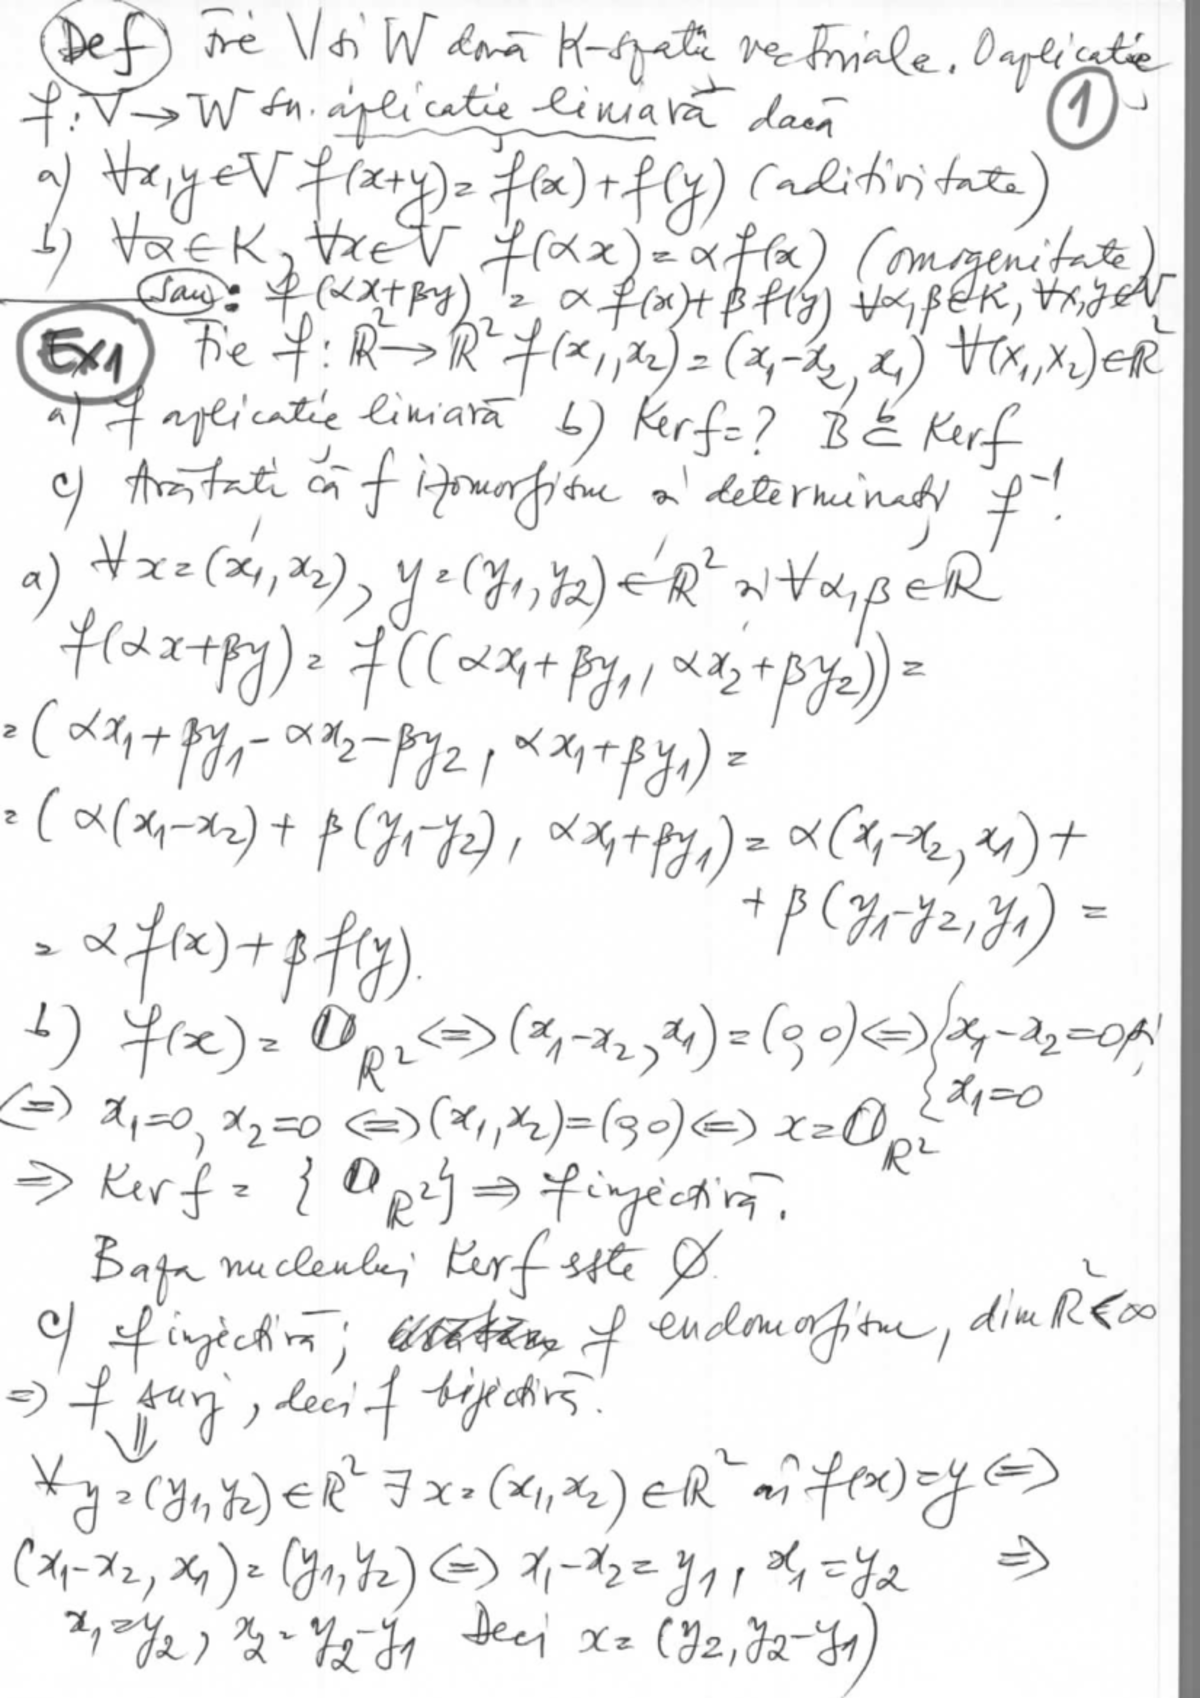 Def Fie V și W două K-spații vectoriale. O aplicație
f: V → W s.n. aplicație liniară dacă
①
a) ∀x,y∈V f(x+y) = f(x) + f(y) (aditivitate)
b) ∀α∈K, ∀x∈V f(αx) = αf(x) (omogenitate)
sau: f(αx+βy) = αf(x)+βf(y) ∀α,β∈K, ∀x,y∈V
Ex1 Fie f: ℝ² → ℝ² f(x₁,x₂) = (x₁-x₂, x₁) ∀(x₁,x₂)∈ℝ²
a) f aplicație liniară b) Ker f=? B ⊂ᵇ Ker f
c) Arătați că f izomorfism și determinați f⁻¹!
a) ∀x=(x₁,x₂), y=(y₁,y₂)∈ℝ² și ∀α,β∈ℝ
f(αx+βy) = f((αx₁+βy₁, αx₂+βy₂)) =
= (αx₁+βy₁-αx₂-βy₂, αx₁+βy₁) =
= (α(x₁-x₂) + β(y₁-y₂), αx₁+βy₁) = α(x₁-x₂, x₁) +
+ β(y₁-y₂, y₁) =
= αf(x) + βf(y).
b) f(x) = 0_ℝ² ⇔ (x₁-x₂, x₁) = (0,0) ⇔ { x₁-x₂=0 și
{ x₁=0
⇔ x₁=0, x₂=0 ⇔ (x₁,x₂)=(0,0) ⇔ x=0_ℝ²
⇒ Ker f = {0_ℝ²} ⇒ f injectivă.
Baza nucleului Ker f este ∅.
c) f injectivă; f endomorfism, dim ℝ² < ∞
⇒ f surj, deci f bijectivă.
⇓
∀y=(y₁,y₂)∈ℝ² ∃x=(x₁,x₂)∈ℝ² aî f(x)=y ⇔
(x₁-x₂, x₁) = (y₁,y₂) ⇔ x₁-x₂=y₁, x₁=y₂ ⇒
x₁=y₂, x₂=y₂-y₁ Deci x=(y₂, y₂-y₁)